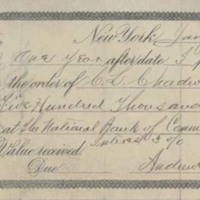 New York, Jan
One Year after date I p
the order of C. L. Chadw
Five Hundred Thousand
at The National Bank of Comm
Value received. Interest 5%
Due Andrew